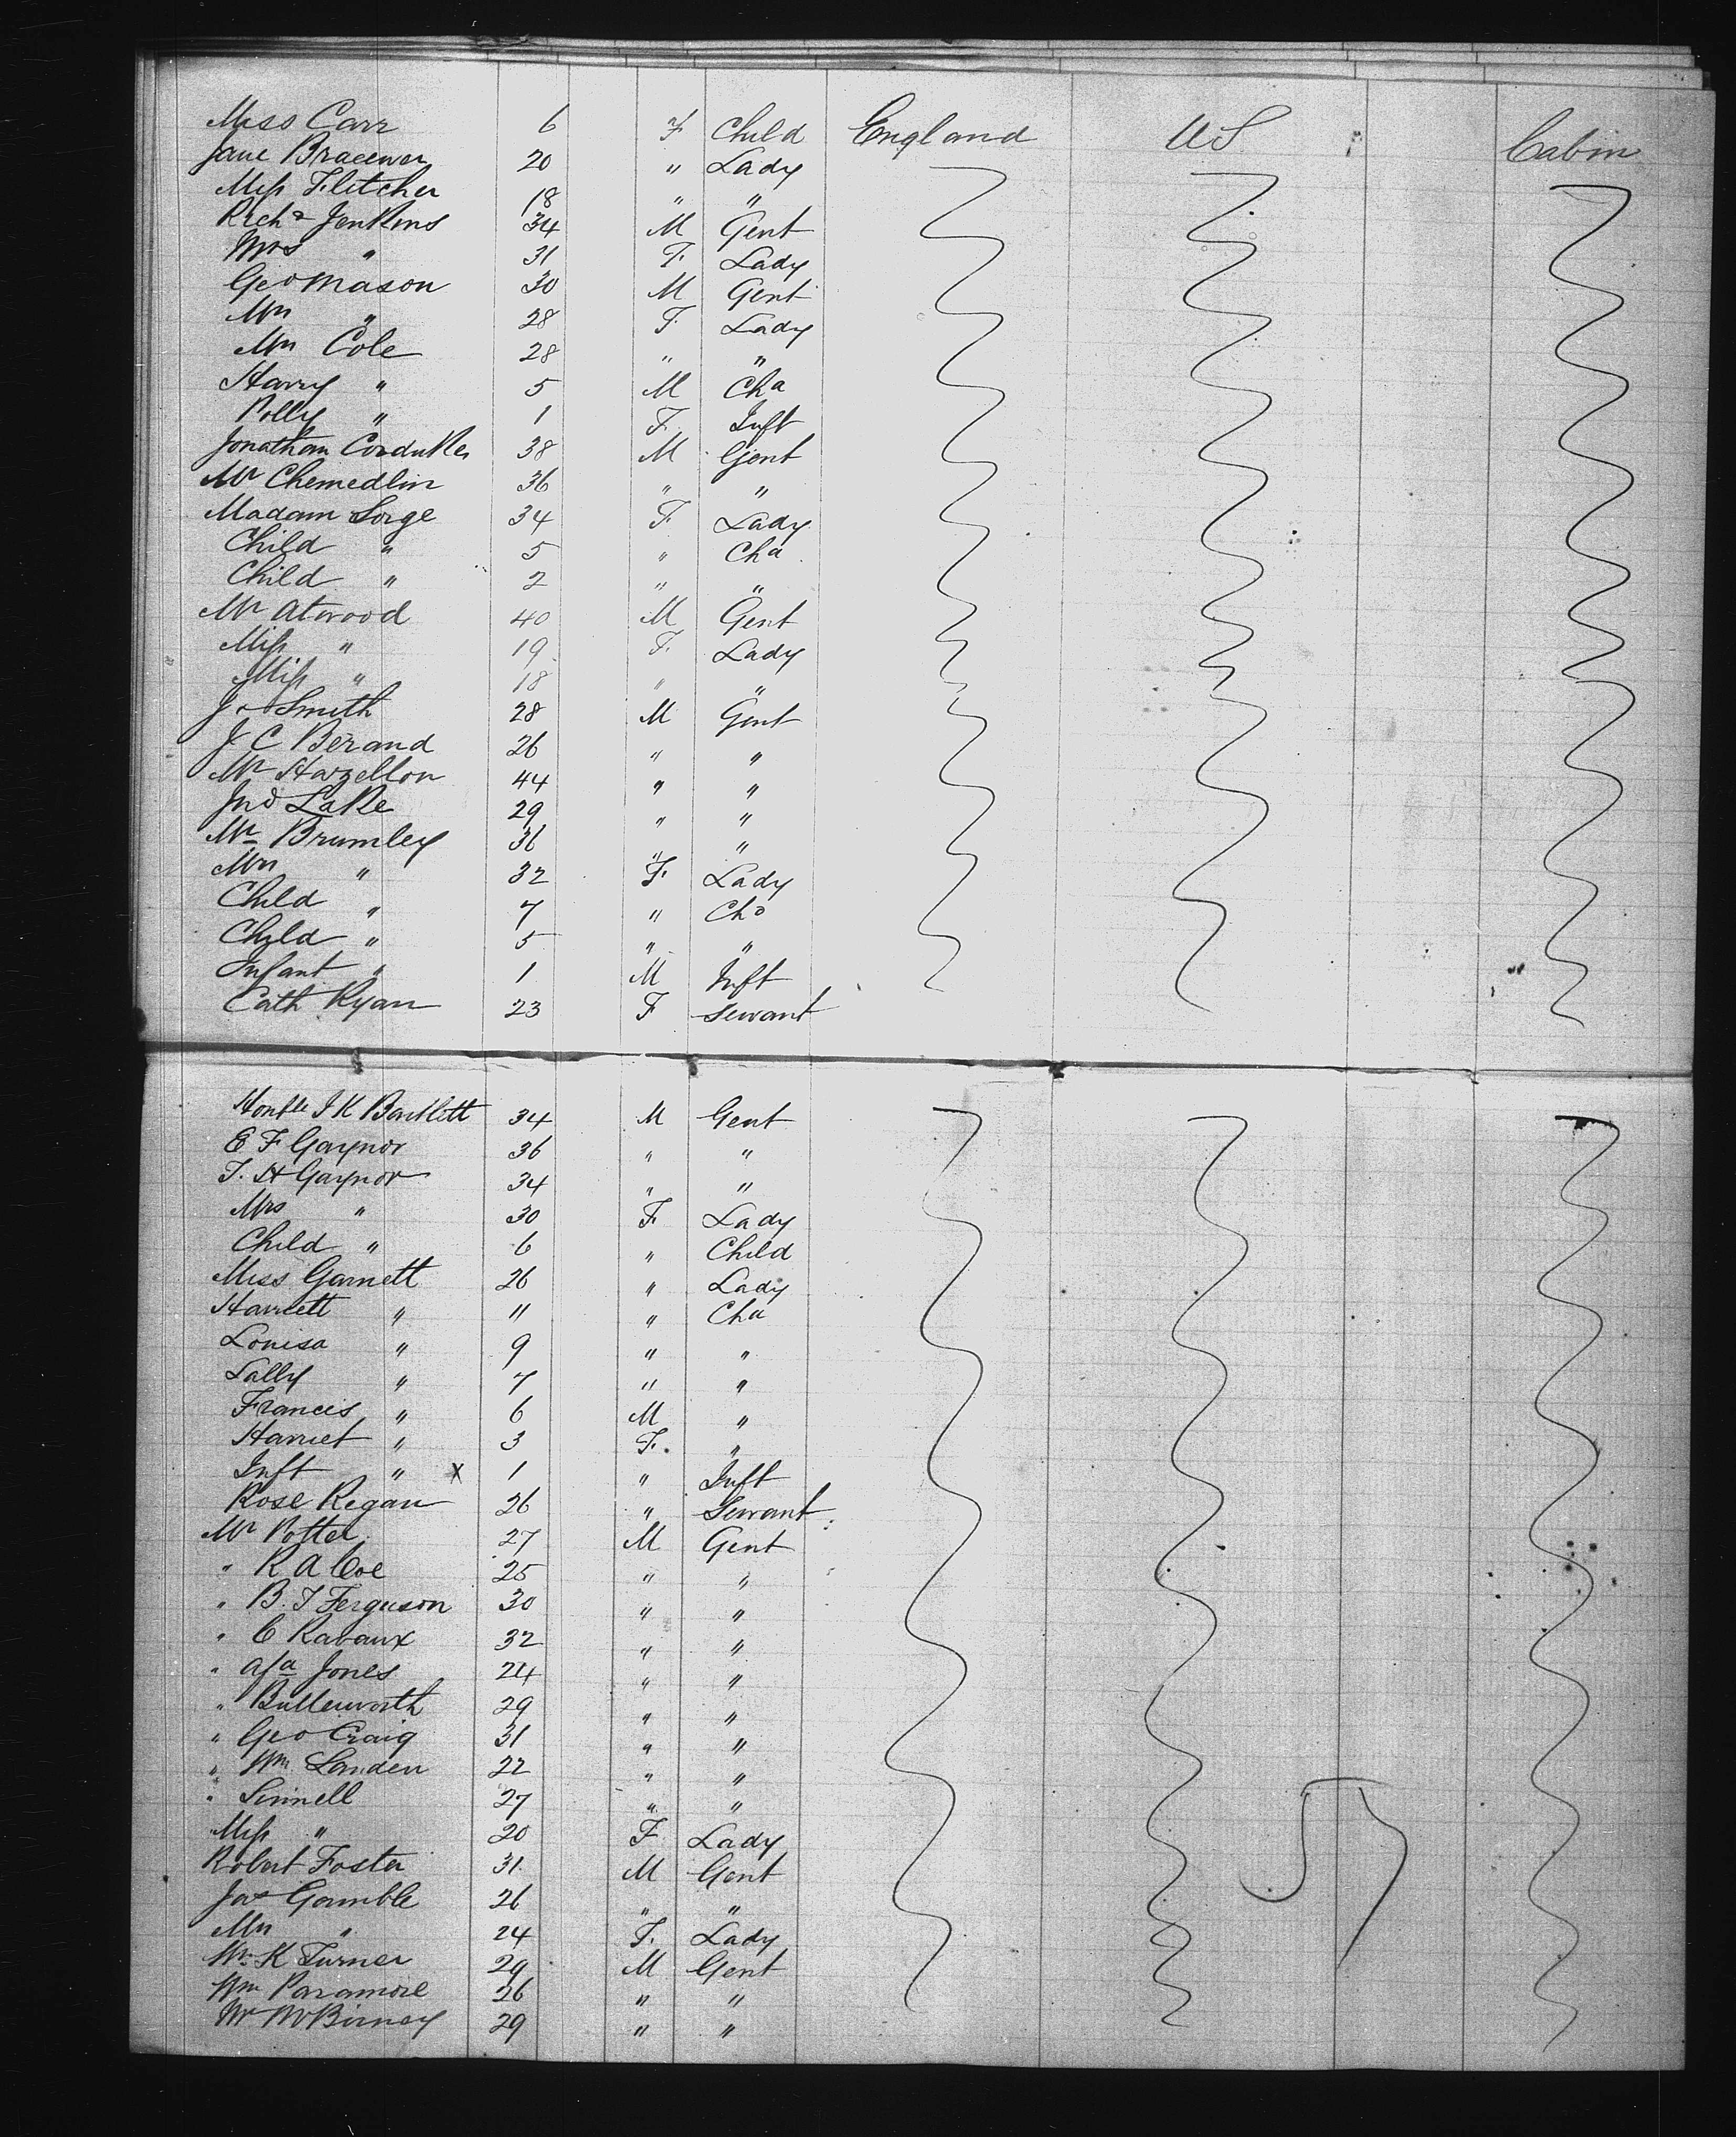 Miss Carr 6 F Child England US Cabin
Jane Bracewer 20 " Lady
Miss Fletcher 18 " "
Richd Jenkins 34 M Gent
Mrs " 31 F. Lady
Geo Mason 30 M Gent
Mrs " 28 F. Lady
Mrs Cole 28 " "
Harry " 5 M Chd
Polly " 1 F. Inft
Jonathan Cordukes 38 M Gent
Mr Chemedlin 36 " "
Madam Sorge 34 F Lady
Child " 5 " Chd
Child " 2 " "
Mr Atwood 40 M Gent
Miss " 19 F. Lady
Miss " 18 " "
Js Smith 28 M Gent
J C Berand 26 " "
Mr Hazellon 44 " "
Jno Lake 29 " "
Mr Brumley 36 " "
Mrs " 32 F. Lady
Child " 7 " Chd
Child " 5 " "
Infant " 1 M Inft
Cath Ryan 23 F Servant
Honble I K Bartlett 34 M Gent
E F Gaynor 36 " "
T. H Gaynor 34 " "
Mrs " 30 F. Lady
Child " 6 " Child
Miss Garnett 26 " Lady
Harriett " 11 " Chd
Louisa " 9 " "
Sally " 7 " "
Francis " 6 M "
Harriet " 3 F. "
Inft " X 1 " Inft
Rose Regan 26 " Servant
Mr Potter 27 M Gent
" R A Coe 25 " "
" B. T Ferguson 30 " "
" C Rabaux 32 " "
" Asa Jones 24 " "
" Butterworth 29 " "
" Geo Craig 31 " "
" Wm Landen 22 " "
" Sinnell 27 " "
Miss " 20 F Lady
Robert Foster 31 M Gent
Jas Gamble 26 " "
Mrs " 24 F. Lady
Wm K Turner 29 M Gent
Wm Paramore 26 " "
Mr McBirney 29 " "